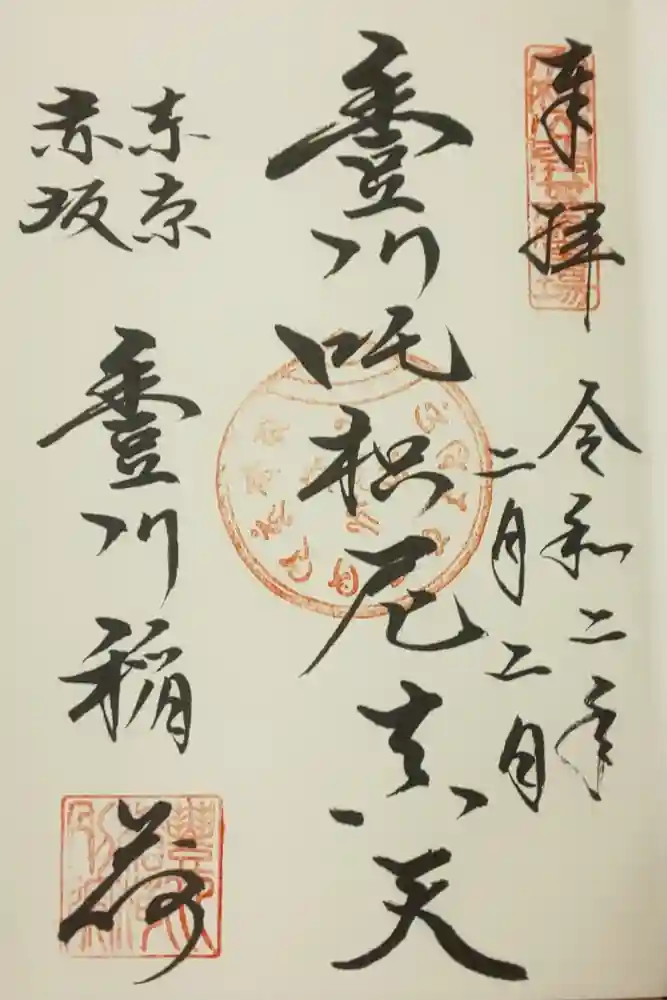 奉拝
令和二年
二月二日
豊川吒枳尼真天
東京
赤坂
豊川稲荷